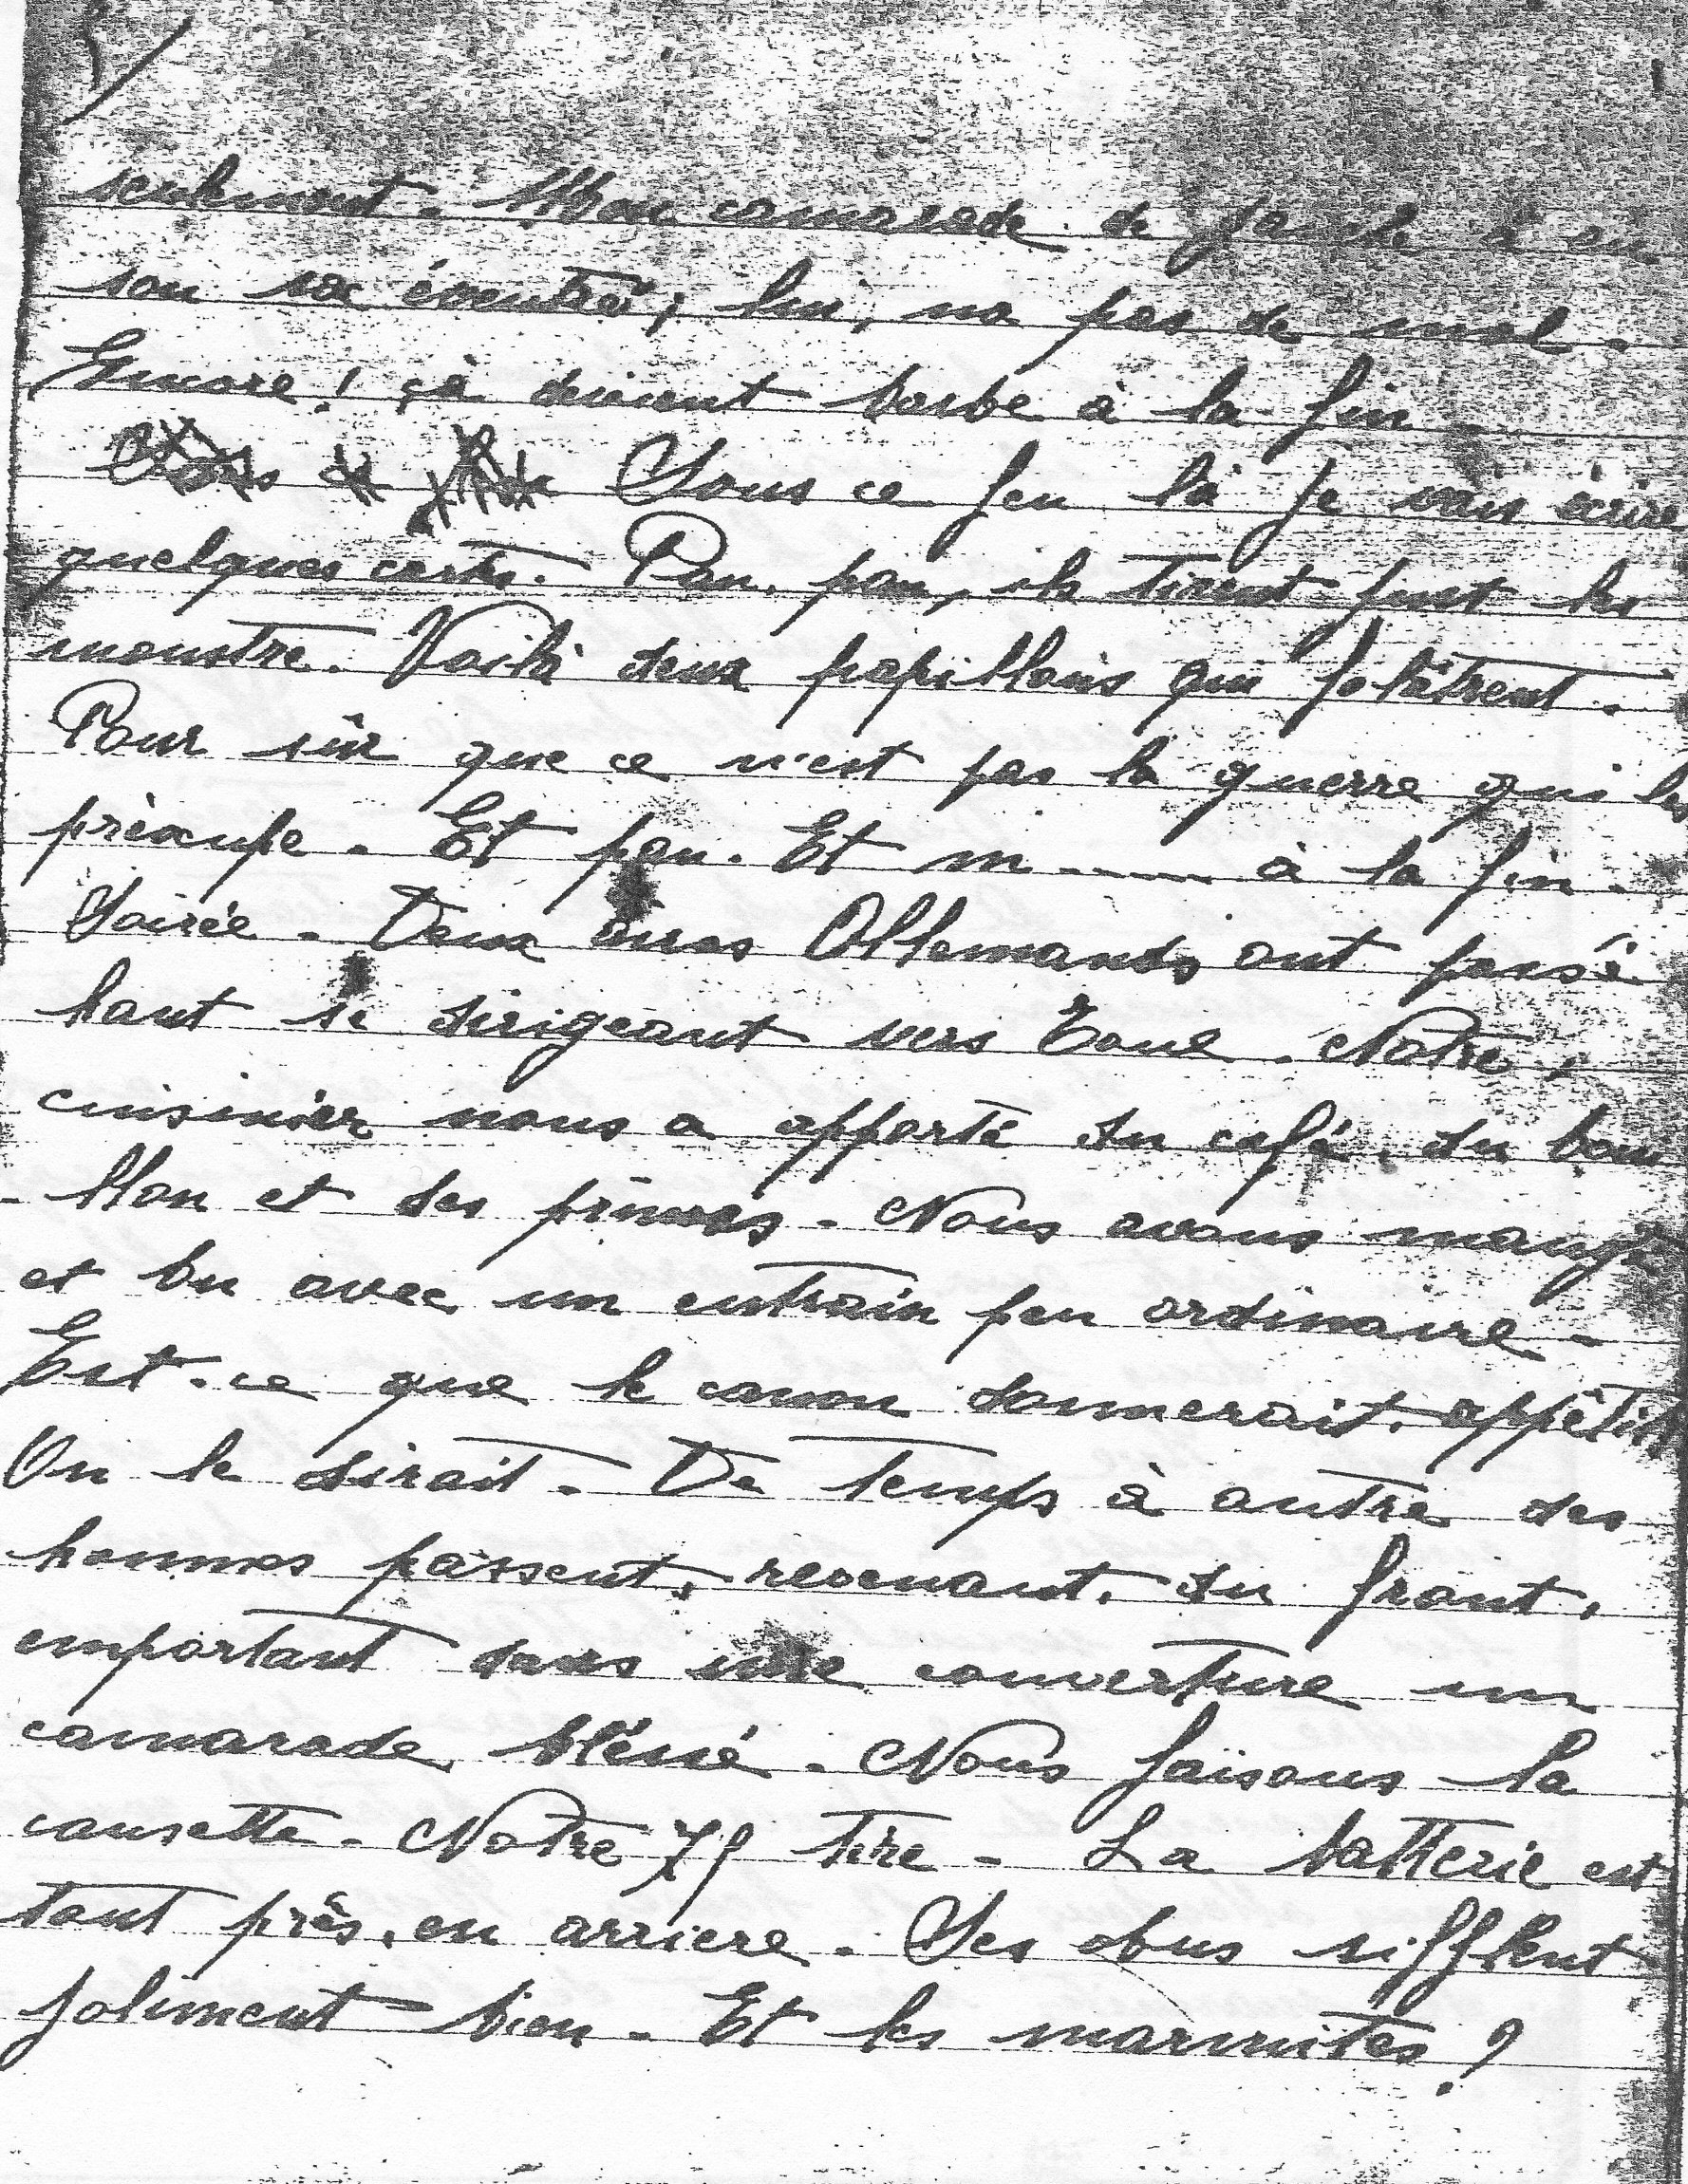 5/
seulement. Mon camarade de gauche a eu
son sac éventré, lui, na pas de mal.
Encore! çà devient barbe à la fin
Sous ce feu là je vais écrire
quelques cartes. Pan, pan, ils tirent just les
monstre. Voilà deux papillons qui folâtrent.
Pour sûr que ce n'est pas la guerre qui les
préocupe. Et pan. Et m...... à la fin.
Soirée. Deux Allemands, ont passé
haut se dirigeant vers Toul. Notre,
cuisinier nous a apporté du café, du boui
-llon et des prunes. Nous avons mangé
et bu avec un entrain peu ordinaire.
Est-ce que le canon donnerait appétit
On le dirait. De temps à autre des
hommes passent, revenant, du front,
emportant dans une couverture un
camarade bléssé. Nous faisons la
causette. Notre 75 tire. La batterie est
tout près, en arriere. Ses obus sifflent
joliment bien. Et les marmites?